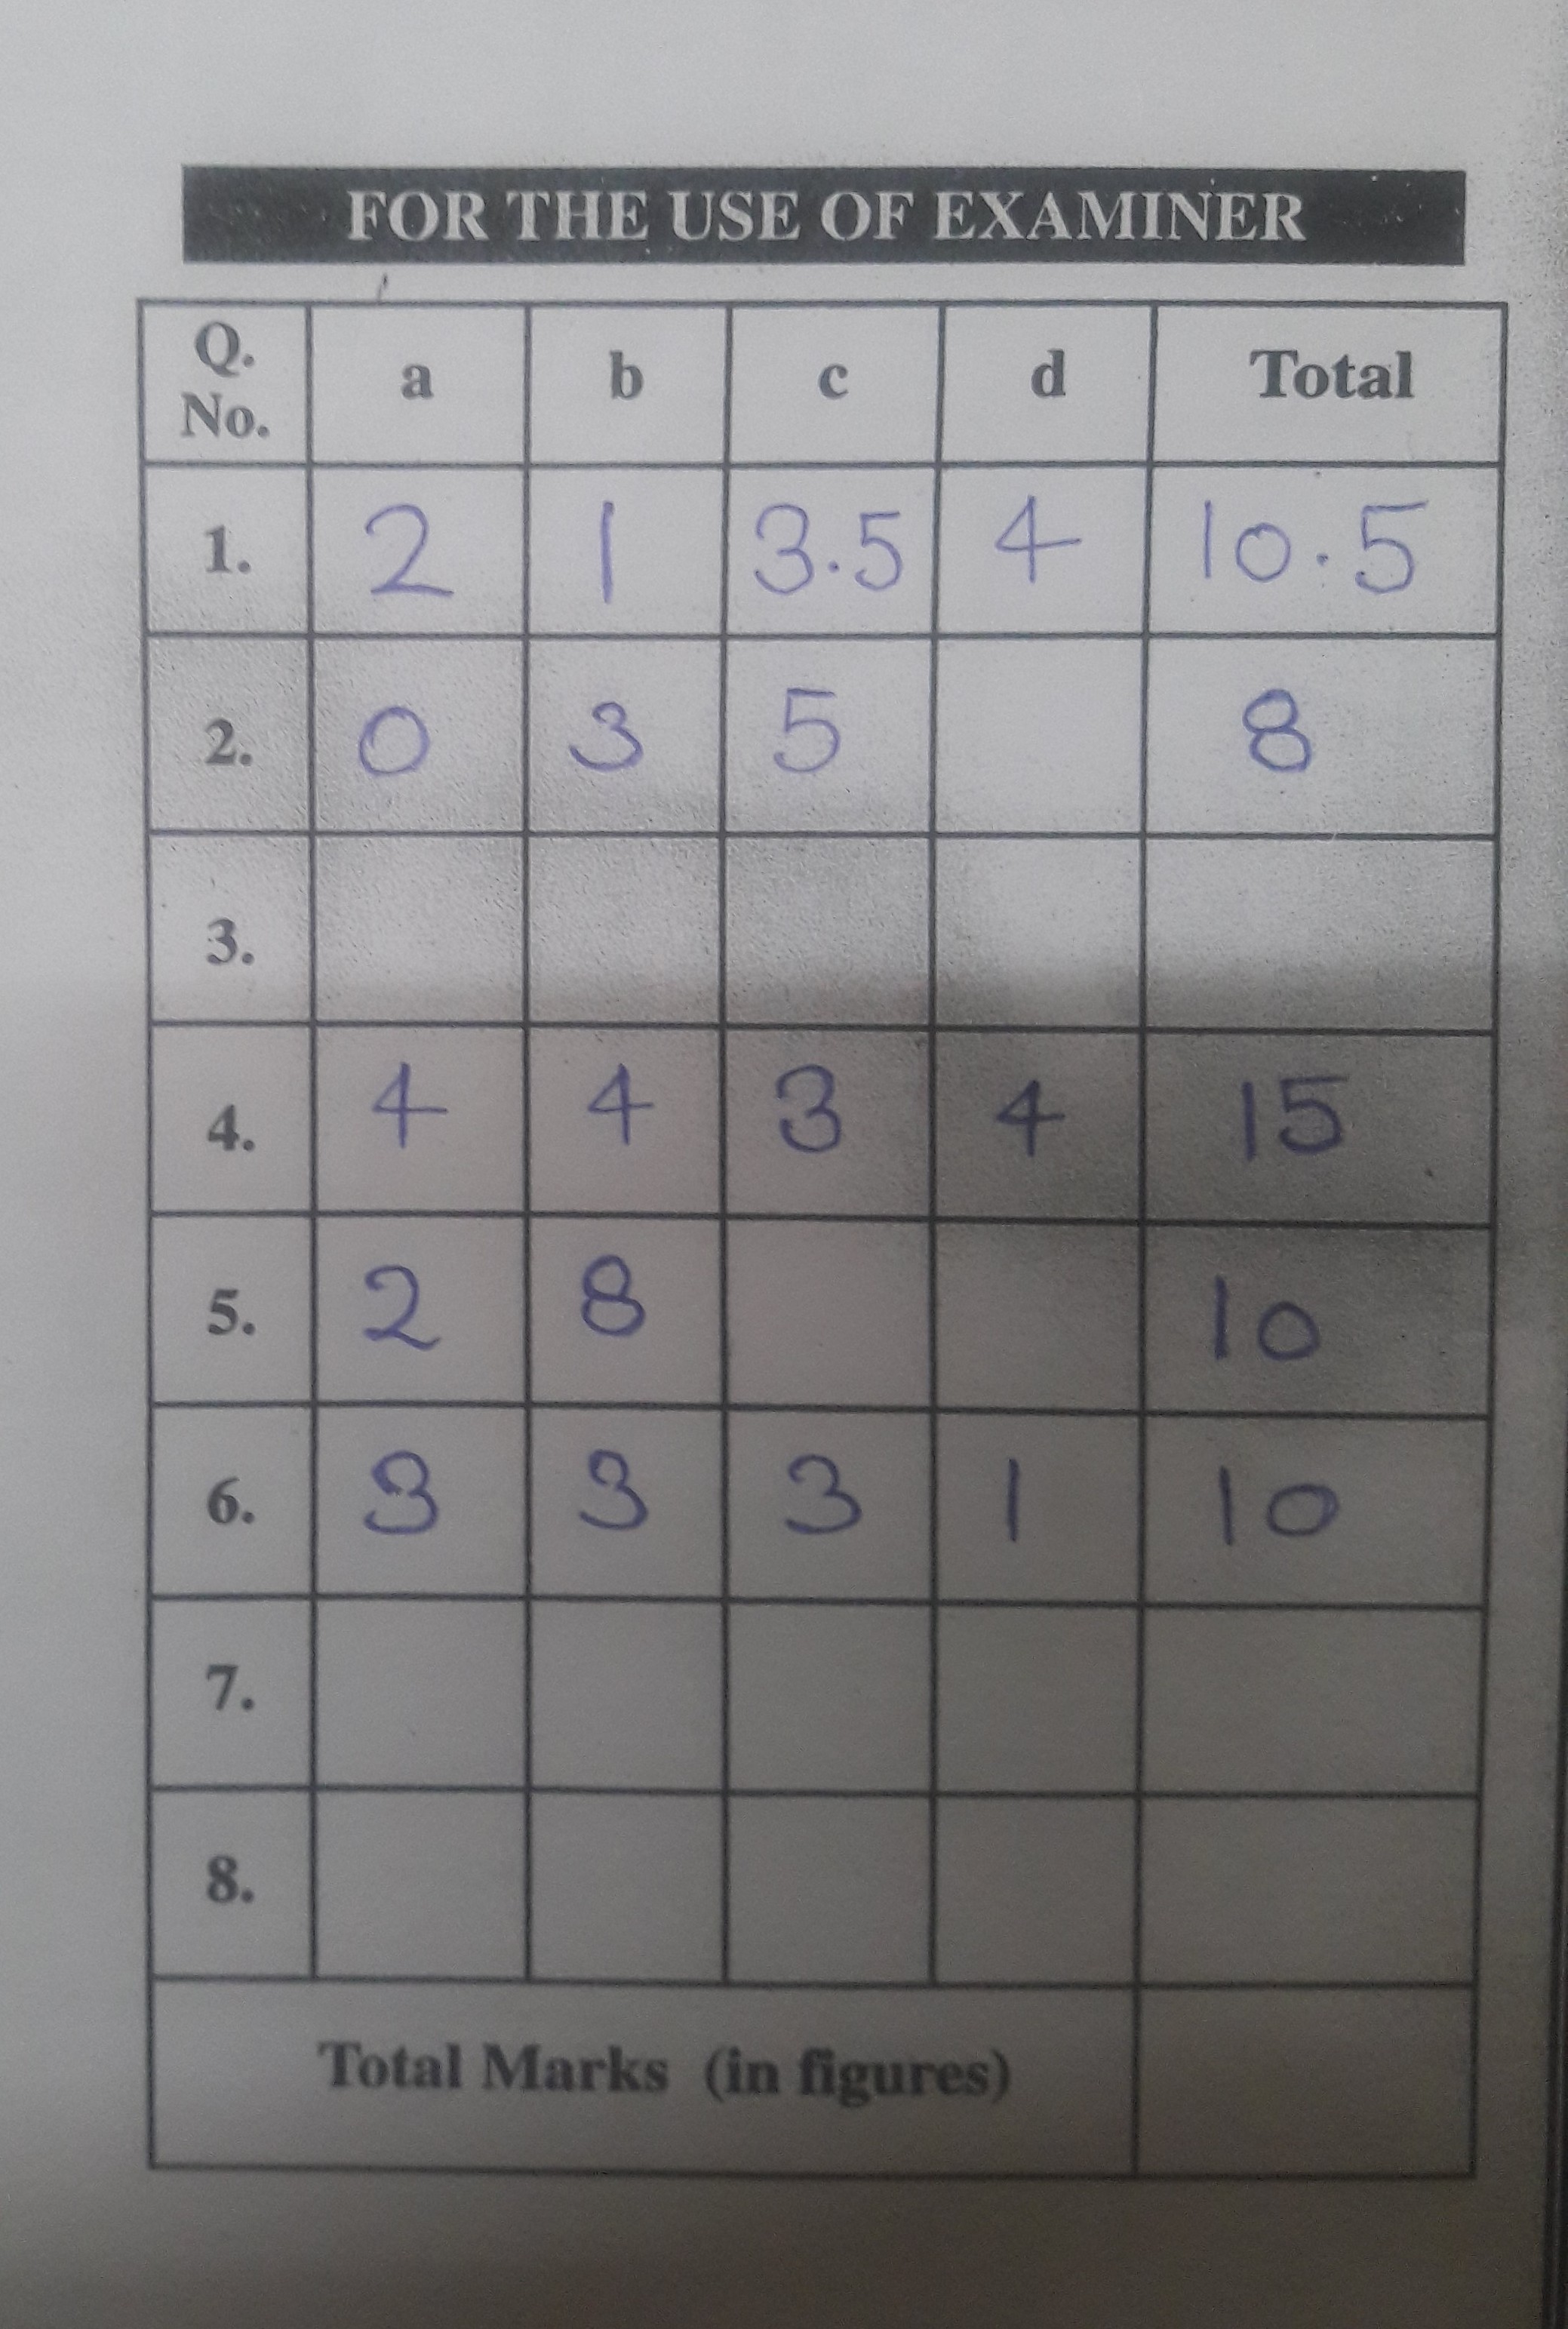 FOR THE USE OF EXAMINER
Q. No. a b c d Total
1. 2 1 3.5 4 10.5
2. 0 3 5 8
3.
4. 4 4 3 4 15
5. 2 8 10
6. 3 3 3 1 10
7.
8.
Total Marks (in figures)